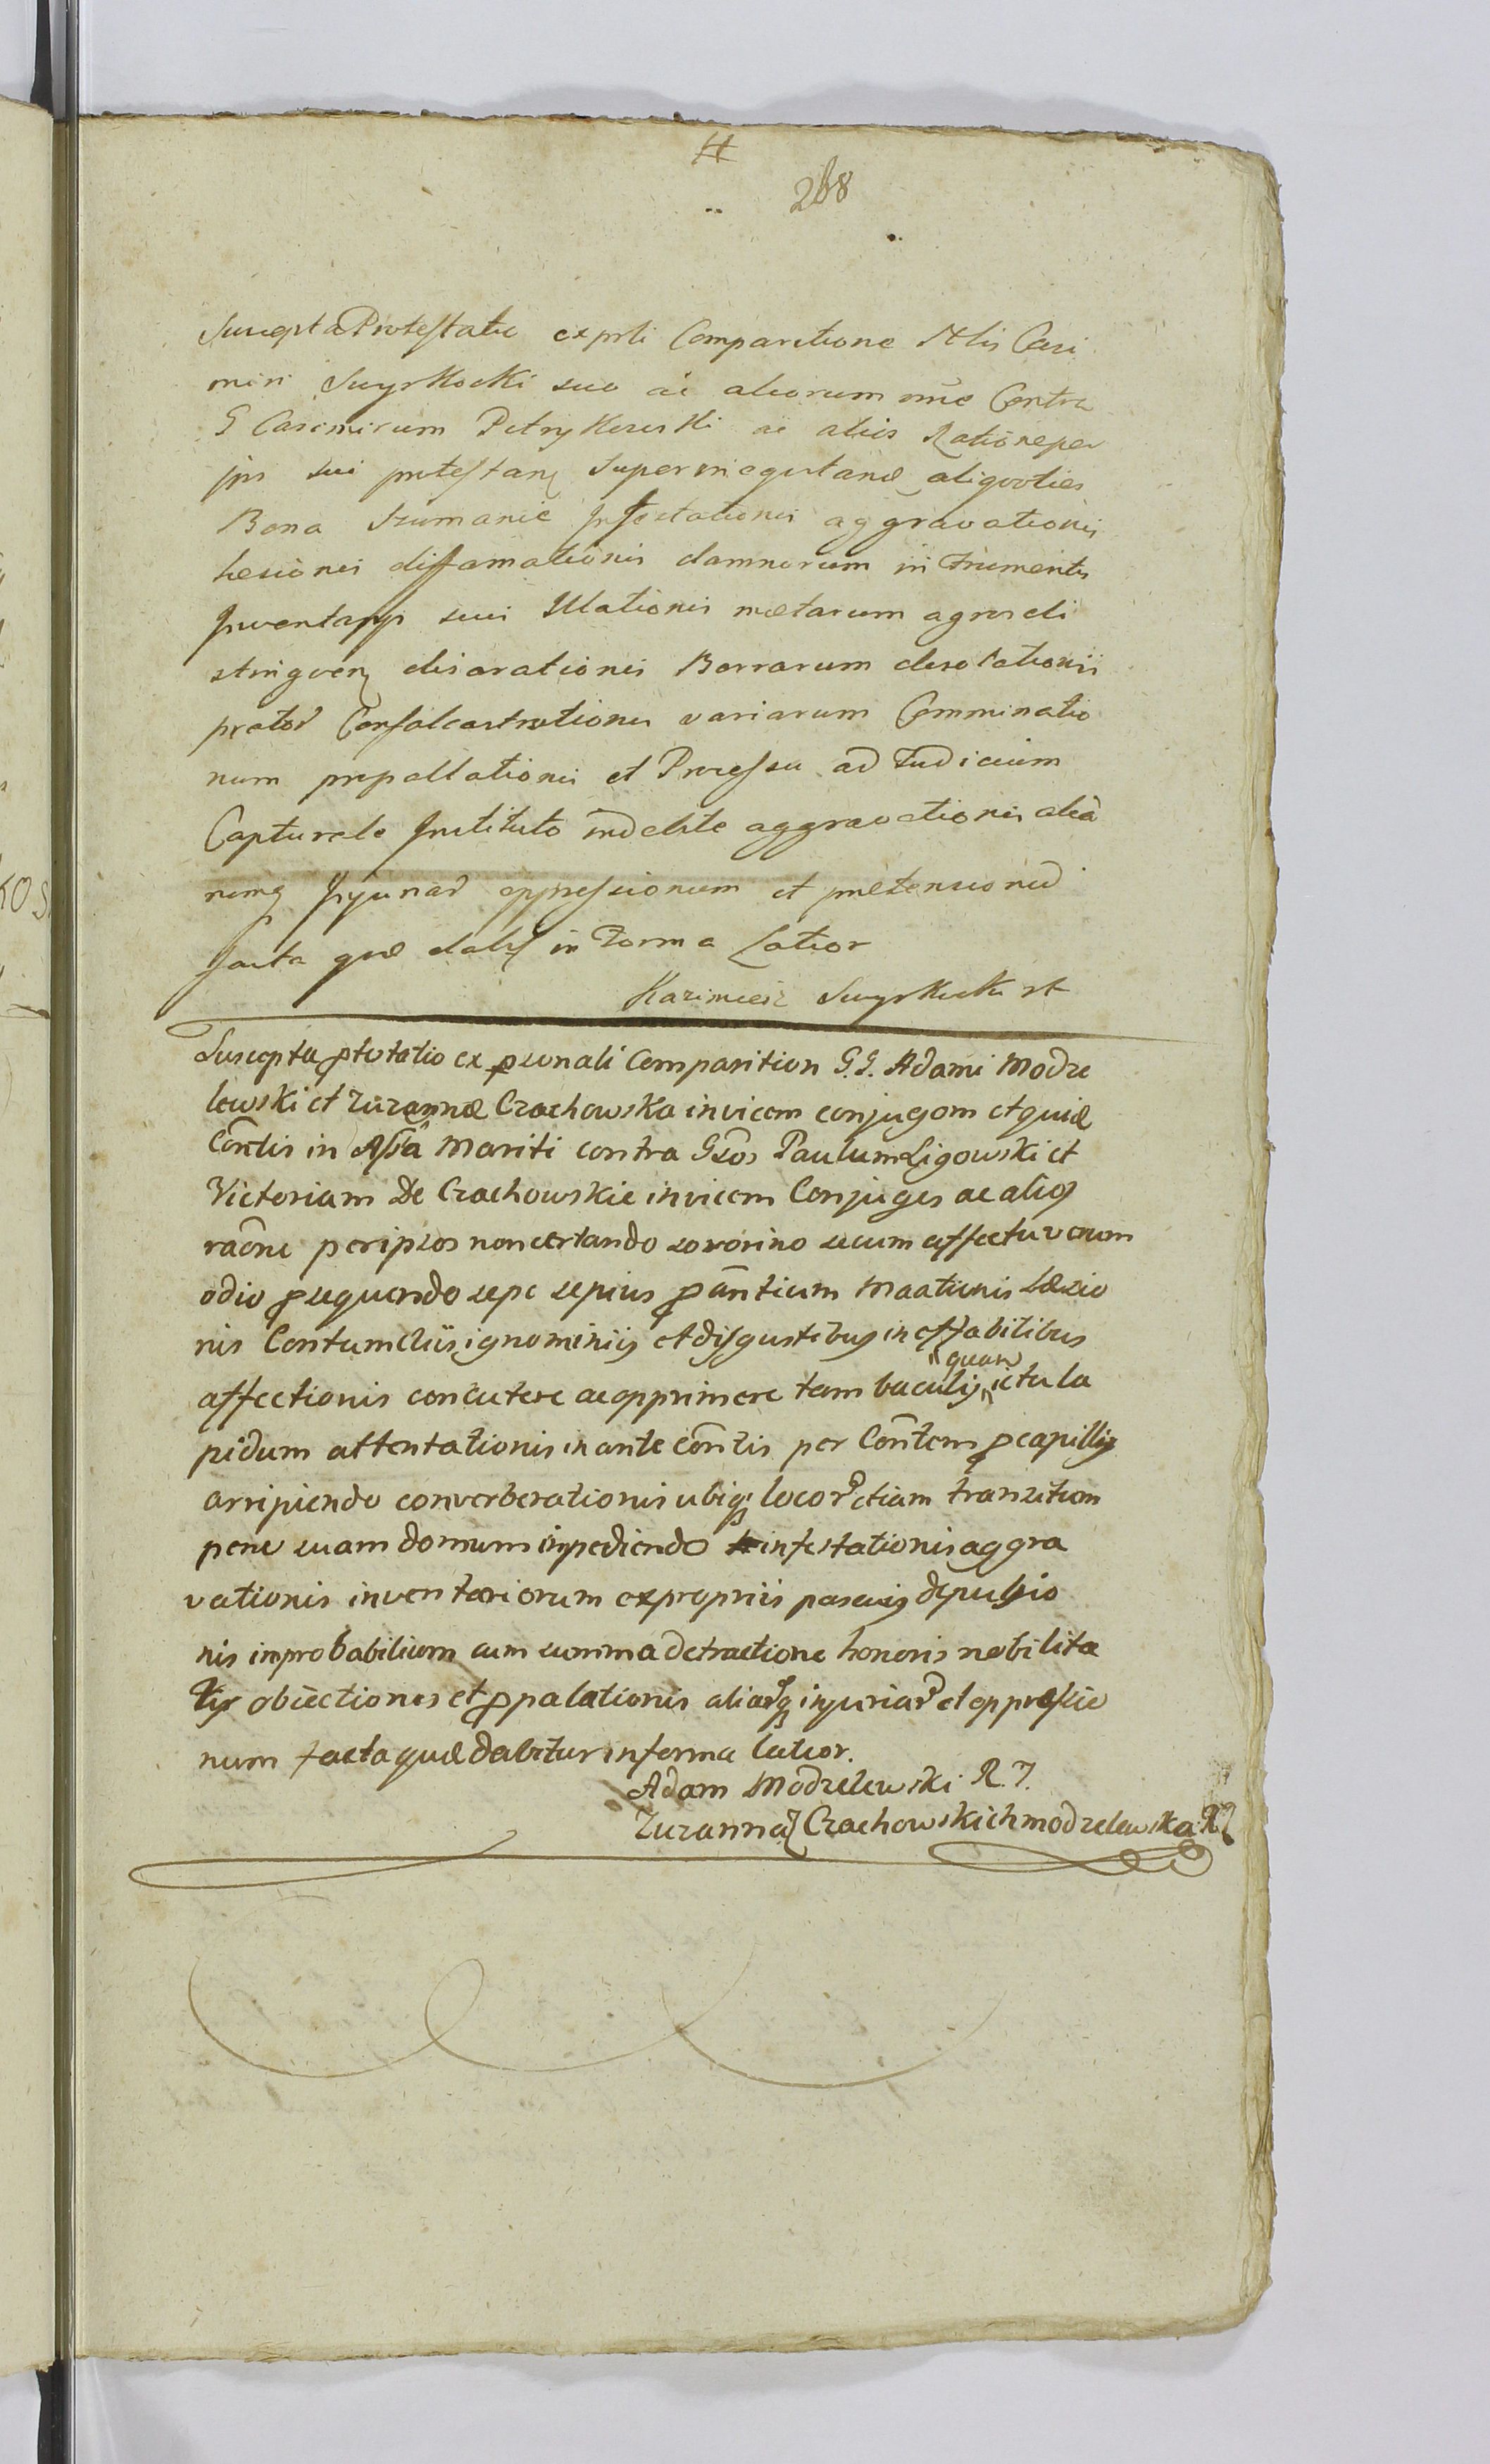 268
Suscepta Protestatio ex prli Comparitione Nlis Casi
miri Swyskocki suo ac aliorum nne Contra
G Casimirum Petrykowski ac aliis Ratione per
ips sui protestan supervineqvitanã aliqvoties
Bona Szumanie Infestationis aggravationis
Lesionis diffamationis damnorum in Frumentis
Inventarys suis Illationis metarum agros di
stingven disarationis Borrarum desolationis
prator Confalcastrationis variarum Comminatio
num propallationis et Processu ad Judicium
Capturale Instituto indebite aggravationis alia
rumq Injuriar oppressionum et prætensionu
facta quæ dabit in Forma Latior
Kazimierz Swyskocki
Suscepta ptstatio ex psonali Comparition G.G. Adami Modze
lewski et Zuzannæ Czachowska invicem conjugom et quidẽ
Contis in Assã Mariti contra Gsos Paulum Ligowski et
Victoriam De Czachowskie invicem Conjuges ac alios
raõne per ipsos non certando sororino secum affectu verum
odio psequendo sepe sepius pañtium Maationis Læsio
nis Contumeliis ignominiis et disgustibus ineffabilibus
affectionis concutere ac opprimere tam baculis quam ictu la
pidum attentationis in ante Contis per Contem p capillis
arripiendo converberationis ubiq locor etiam transition
pene suam domum inpediendo infestationis aggra
vationis inventariorum ex propriis pascuis depulsio
nis improbabilium cum summa detractione honoris nobilita
tis obiectiones et ppalationis aliarq injuriar et oppressio
num facta quæ dabitur in forma latior.
Adam Modzelewski R.J.
Zuzanna Z Czachowskich modzelewska